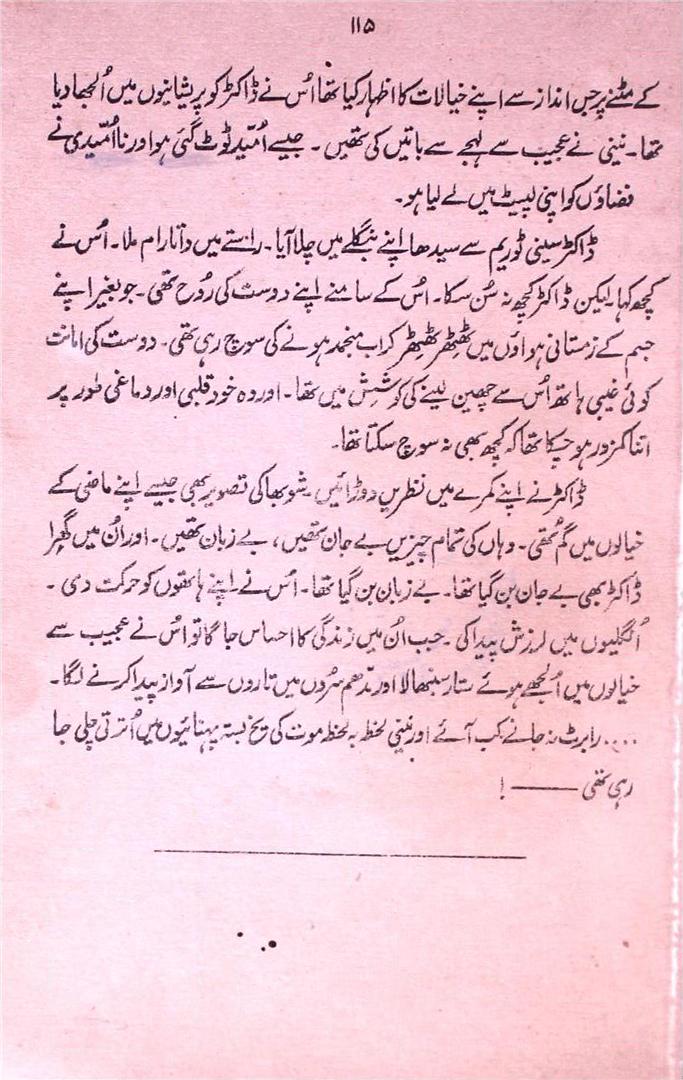 ۱۱۵
کے مٹنے پر جس انداز سے اپنے خیالات کا اظہار کیا تھا اُس نے ڈاکٹر کو پریشانیوں میں اُلجھا دیا
تھا۔ نینی نے عجیب سے لہجے سے باتیں کی تھیں۔ جیسے اُمّید ٹوٹ گئی ہو اور نا اُمّیدی نے
فضاؤں کو اپنی لپیٹ میں لے لیا ہو۔
ڈاکٹر سینی ٹوریم سے سیدھا اپنے بنگلے میں چلا آیا۔ راستے میں داتا رام ملا۔ اُس نے
کچھ کہا۔ لیکن ڈاکٹر کچھ نہ سُن سکا۔ اُس کے سامنے اپنے دوست کی رُوح تھی۔ جو بغیر اپنے
جسم کے زمستانی ہواؤں میں ٹھٹھر ٹھٹھر کر اب منجمد ہونے کی سوچ رہی تھی۔ دوست کی امانت
کوئی غیبی ہاتھ اُس سے چھین لینے کی کوشش میں تھا۔ اور وہ خود قلبی اور دماغی طور پر
اتنا کمزور ہو چکا تھا کہ کچھ بھی نہ سوچ سکتا تھا۔
ڈاکٹر نے اپنے کمرے میں نظریں دوڑائیں۔ شوبھا کی تصویر بھی جیسے اپنے ماضی کے
خیالوں میں گم تھی۔ وہاں کی تمام چیزیں بے جان تھیں، بے زبان تھیں۔ اور اُن میں گھرا
ڈاکٹر بھی بے جان بن گیا تھا۔ بے زبان بن گیا تھا۔ اُس نے اپنے ہاتھوں کو حرکت دی۔
اُنگلیوں میں لرزش پیدا کی۔ جب اُن میں زندگی کا احساس جاگا تو اُس نے عجیب سے
خیالوں میں اُلجھے ہوئے ستار سنبھالا اور مدّھم سُروں میں تاروں سے آواز پیدا کرنے لگا۔
.... رابرٹ نہ جانے کب آئے اور نینی لحظہ بہ لحظہ موت کی یخ بستہ پہنائیوں میں اُترتی چلی جا
رہی تھی ——— !